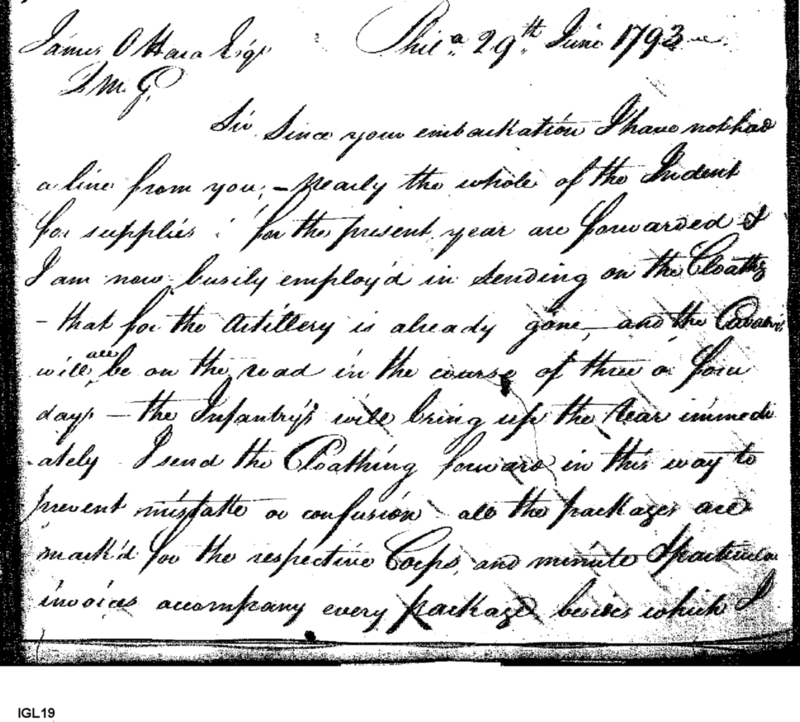 James O Hara Esqr Phila. 29th. June 1793
Q M. G.
Sir Since your embarkation I have not had
a line from you, - Nearly the whole of the Indent
for supplies for the present year are forwarded &
I am now busily employ'd in sending on the Cloathg
- that for the Artillery is already gone - and the Cavalry's
will all be on the road in the course of three or four
days - the Infantry's will bring up the Rear immedi
ately I send the Cloathing forward in this way to
prevent mistake or confusion all the packages are
mark'd for the respective Corps, and minute & particular
invoices accompany every package besides which I
IGL19